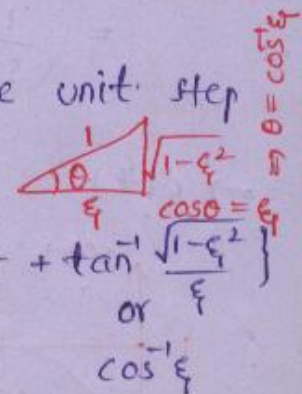 e unit step
1
θ
√1-ξ²
ξ
cosθ = ξ
⇒ θ = cos⁻¹ξ
+ tan⁻¹ √1-ξ²/ξ }
or
cos⁻¹ξ